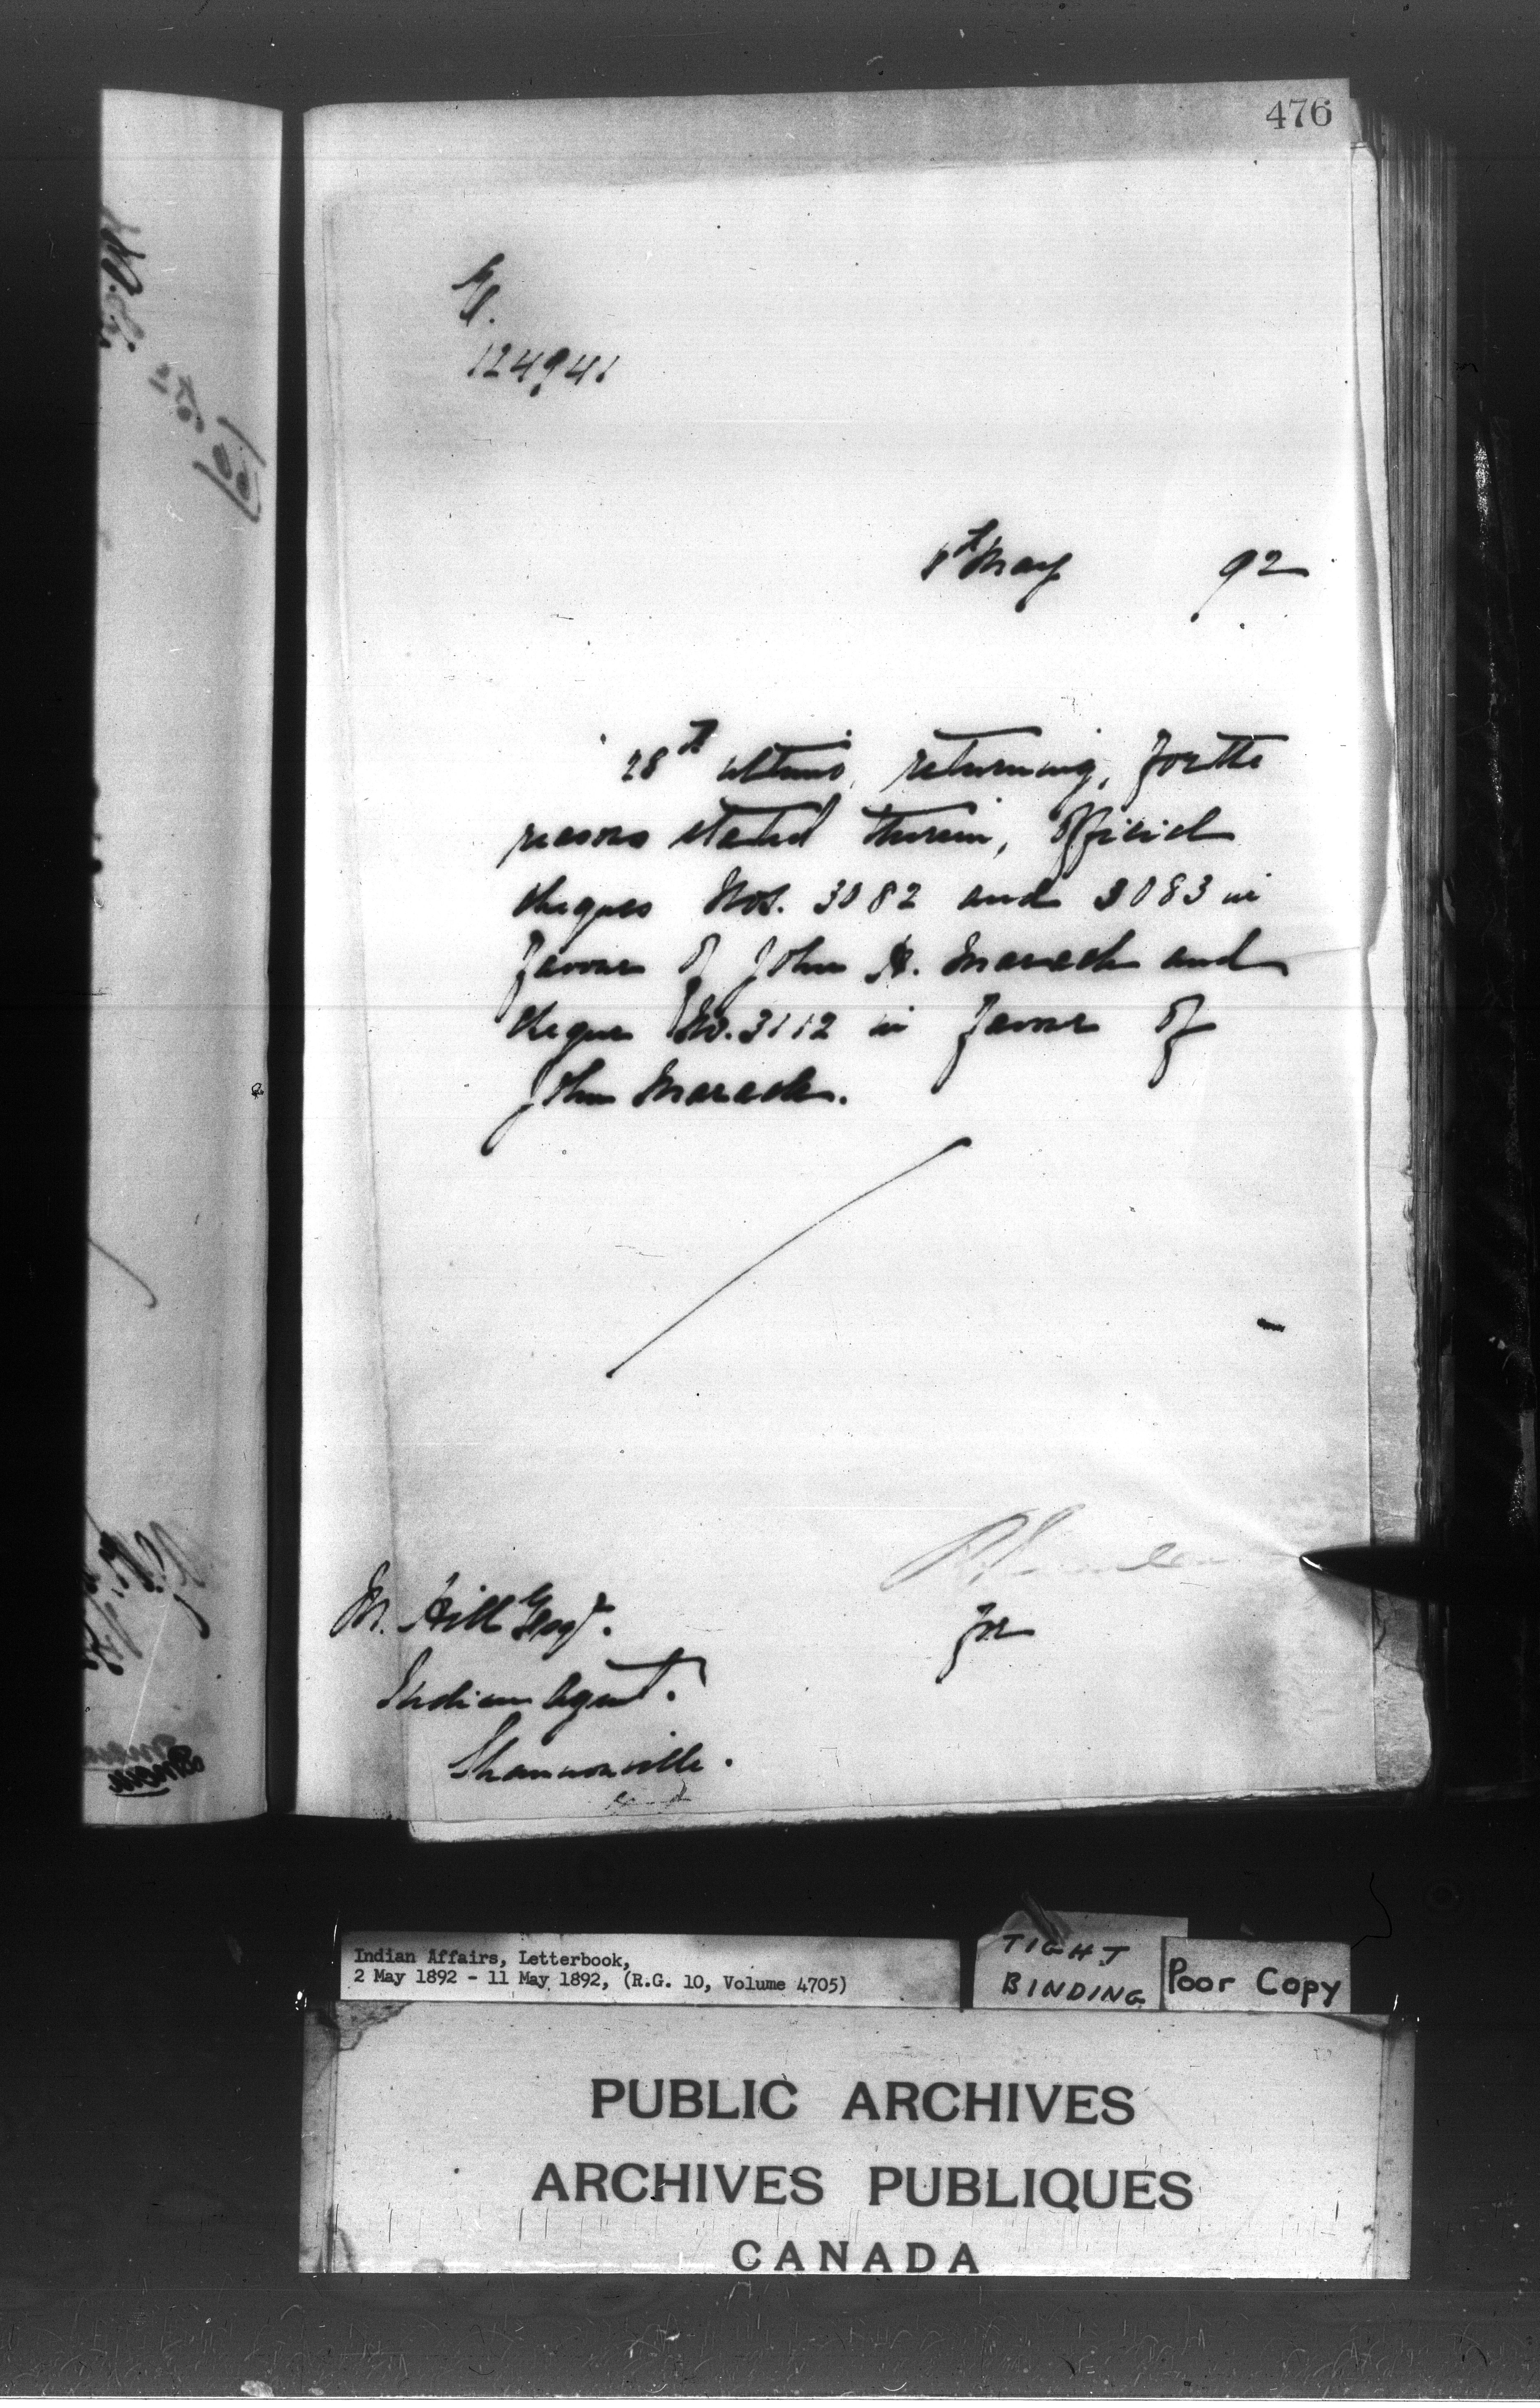 476
124941
8th May 92
28th ultimo, returning, for the
reasons stated therein, Official
cheques Nos. 3082 and 3083 in
favour of John A. Maracle and
cheque No. 3112 in favour of
John Maracle.
for
M. Hill Esqr.
Indian Agent.
Shannonville.
Indian Affairs, Letterbook,
2 May 1892 - 11 May 1892, (R.G. 10, Volume 4705)
TIGHT
BINDING
Poor Copy
PUBLIC ARCHIVES
ARCHIVES PUBLIQUES
CANADA